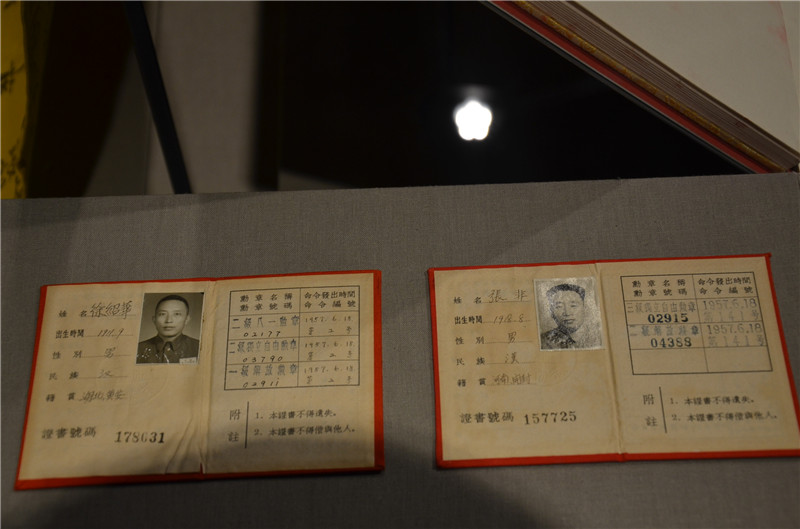 姓名 徐紹華
出生時間 1911.9
性別 男
民族 汉
籍貫 湖北黄安
證書號碼 178631
勳章名稱 命令發出時間
勳章號碼 命令編號
二級八一勳章 1957.6.18
02177 第二号
二級獨立自由勳章 1957.6.18
03790 第二号
一級解放勳章 1957.6.18
02911 第二号
附註
1. 本證書不得遺失。
2. 本證書不得借與他人。
姓名 張非
出生時間 1918.8.
性別 男
民族 漢
籍貫 河南
證書號碼 157725
勳章名稱 命令發出時間
勳章號碼 命令編號
三級獨立自由勳章 1957.6.18
02915 第141号
二級解放勳章 1957.6.18
04388 第141号
附註
1. 本證書不得遺失。
2. 本證書不得借與他人。